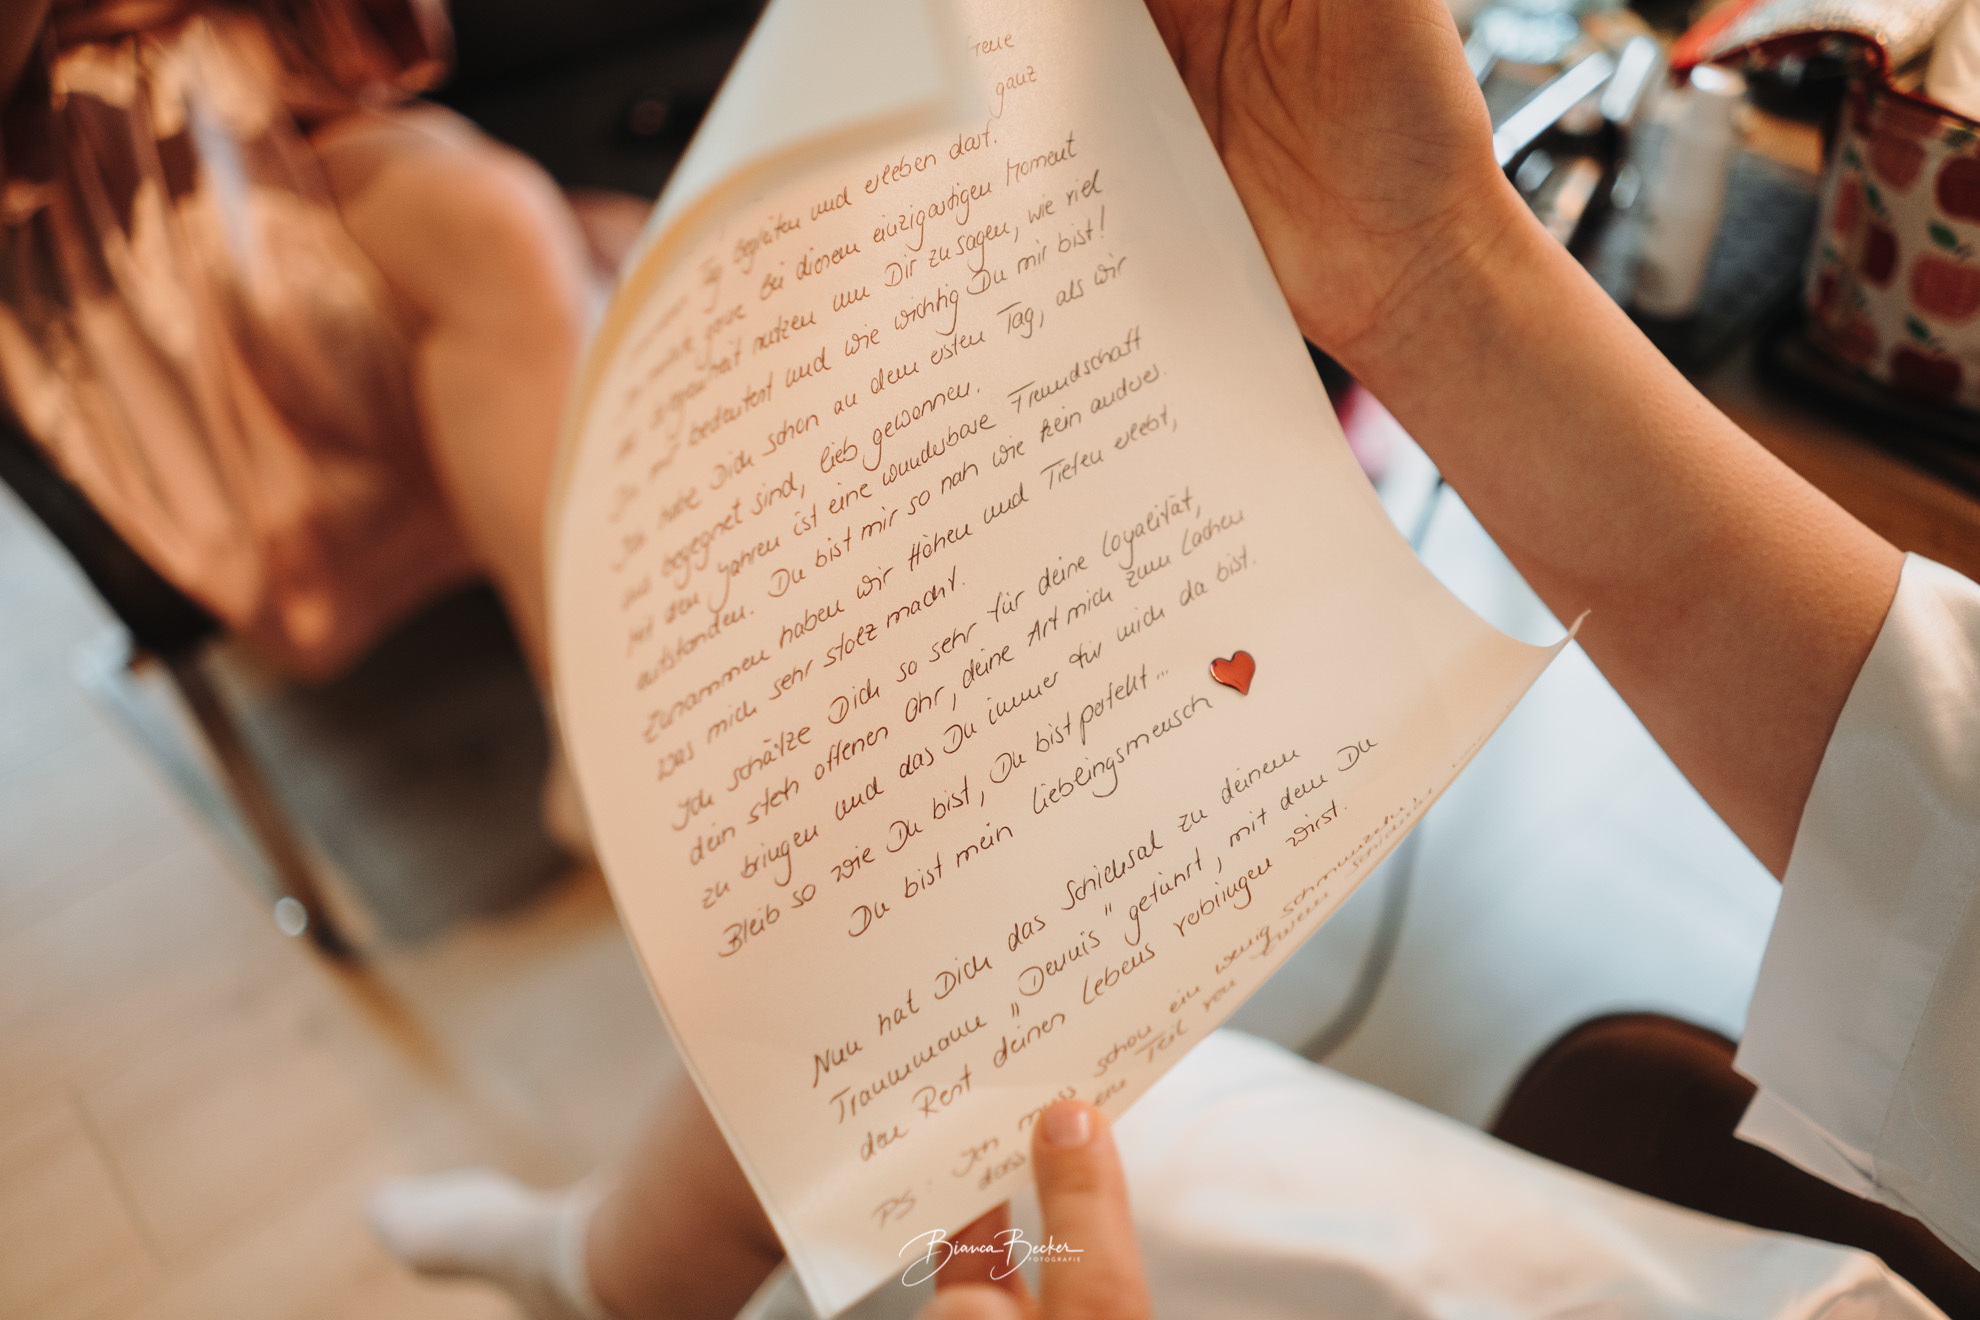 freue
ganz
Tag begleiten und erleben darf.
gerne bei diesem einzigartigen Moment
nutzen um Dir zu sagen, wie viel
Du mir bedeutest und wie wichtig Du mir bist!
Ich habe Dich schon an dem ersten Tag, als wir
uns begegnet sind, lieb gewonnen.
Mit den Jahren ist eine wunderbare Freundschaft
entstanden. Du bist mir so nah wie kein anderer.
Zusammen haben wir Höhen und Tiefen erlebt,
was mich sehr stolz macht.
Ich schätze Dich so sehr für deine Loyalität,
dein stets offenen Ohr, deine Art mich zum Lachen
zu bringen und das Du immer für mich da bist.
Bleib so wie Du bist, Du bist perfekt...
Du bist mein Lieblingsmensch
Nun hat Dich das Schicksal zu deinem
Traummann "Dennis" geführt, mit dem Du
den Rest deines Lebens verbringen wirst.
PS: Ich muss schon ein wenig schmunzeln,
dass ein Teil von
Bianca Becker
FOTOGRAFIE